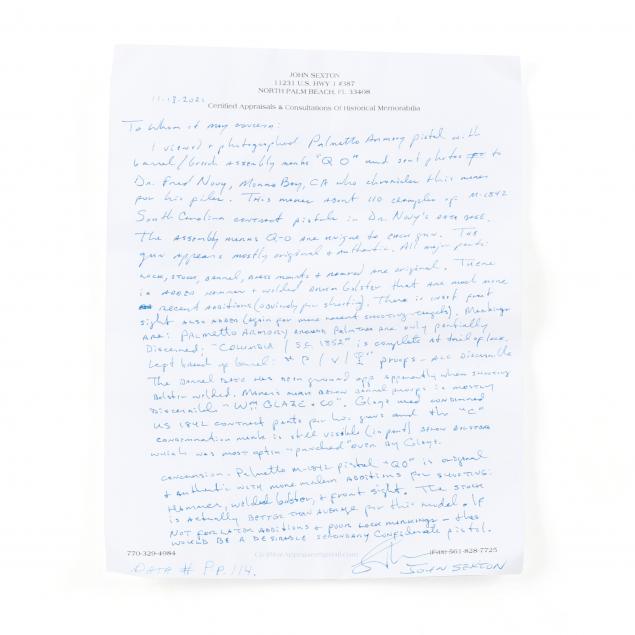 JOHN SEXTON
11231 U.S. HWY 1 #387
NORTH PALM BEACH, FL 33408
11-18-2021
Certified Appraisals & Consultations Of Historical Memorabilia
To Whom it may concern:
I viewed + photographed Palmetto Armory pistol with
barrel/breech assembly marks "Q O" and sent photos to
Dr. Fred Novy, Morro Bay, CA who chronicles this maker
for his files. This makes about 110 examples of M-1842
South Carolina contract pistols in Dr. Novy's data base.
The assembly marks Q-O are unique to each gun. The
gun appears mostly original + authentic. All major parts:
lock, stock, barrel, brass mounts + ramrod are original. There
is added hammer + welded drum bolster that are much more
recent additions (obviously for shooting). There is front
sight also added (again for more recent shooting). Markings
are: Palmetto Armory around Palm tree are only partially
Discerned; "Columbia / S.C. 1852" is complete at tail of lock.
Left breech of barrel: P / V / proofs - all discernible
The barrel date has been ground off apparently when shooting
Bolster welded. Maker's mark below barrel proofs is mostly
discernible "Wm GLAZE & CO". Glaze used condemned
US 1842 contract parts for his guns and the "C"
condemnation mark is still visible (in part) below bolster
which was most often "punched" over by Glaze.
Conclusion: Palmetto M-1842 pistol "QO" is original
+ authentic with more modern additions for shooting:
Hammer, welded bolster, + front sight. The stock
is actually BETTER THAN AVERAGE for this model. If
NOT FOR LATER ADDITIONS & POOR LOCK MARKINGS - this
WOULD BE A DESIRABLE SECONDARY CONFEDERATE PISTOL.
770-329-4984
(FAX) 561-828-7725
DATA # P P. 114.
JOHN SEXTON